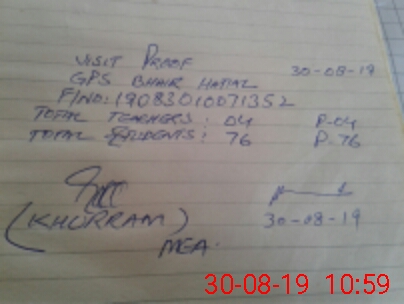 VISIT PROOF 30-08-19
GPS BHAIR HATIAL
F/NO: 19083010071352
TOTAL TEACHERS: 04 P.04
TOTAL STUDENTS: 76 P.76
(KHURRAM) 30-08-19
MEA.
30-08-19 10:59